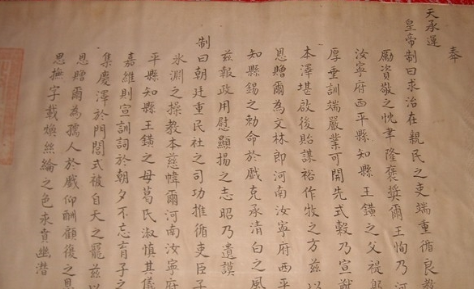 奉
天承運
皇帝制曰求治在親民之吏端重循良教
厲資敬之忱聿隆褒獎爾王恂乃河
汝寧府西平縣知縣王鐄之父禔躬
厚垂訓端嚴業可開先式穀乃宣猷
本澤堪啟後貽謀裕作牧之方茲以
恩贈爾為文林郎河南汝寧府西平
知縣錫之勅命於戲克承清白之風
茲報政用慰顯揚之志昭乃遺謨
制曰朝廷重民社之司功推循吏臣子
冰淵之操教本慈幃爾河南汝寧府
平縣知縣王鐄之母葛氏淑慎其儀
嘉維則宣訓詞於朝夕不忘育子之
集慶澤於門閭式被自天之寵茲以
恩贈爾為孺人於戲仰酬顧復之恩
思撫字載煥絲綸之色永賁幽潛